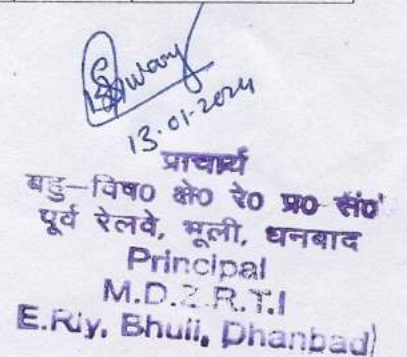 13.01.2024
प्राचार्य
बहु-विष० क्षे० रे० प्र० सं०
पूर्व रेलवे, भूली, धनबाद
Principal
M.D.Z.R.T.I
E.Rly, Bhuli, Dhanbad